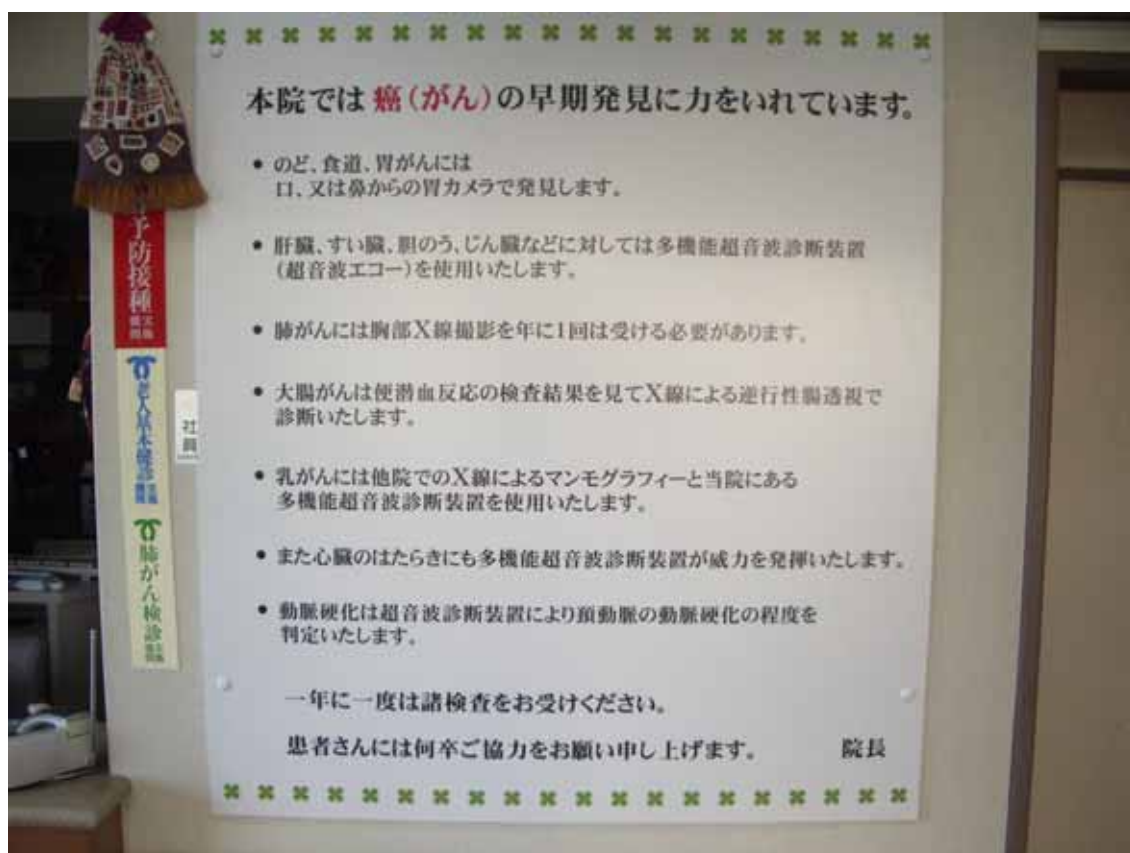 本院では癌(がん)の早期発見に力をいれています。
● のど、食道、胃がんには
口、又は鼻からの胃カメラで発見します。
● 肝臓、すい臓、胆のう、じん臓などに対しては多機能超音波診断装置
(超音波エコー)を使用いたします。
● 肺がんには胸部X線撮影を年に1回は受ける必要があります。
● 大腸がんは便潜血反応の検査結果を見てX線による逆行性腸透視で
診断いたします。
● 乳がんには他院でのX線によるマンモグラフィーと当院にある
多機能超音波診断装置を使用いたします。
● また心臓のはたらきにも多機能超音波診断装置が威力を発揮いたします。
● 動脈硬化は超音波診断装置により頚動脈の動脈硬化の程度を
判定いたします。
一年に一度は諸検査をお受けください。
患者さんには何卒ご協力をお願い申し上げます。 院長
予防接種実施機関
老人基本健診実施機関
肺がん検診実施機関
社員